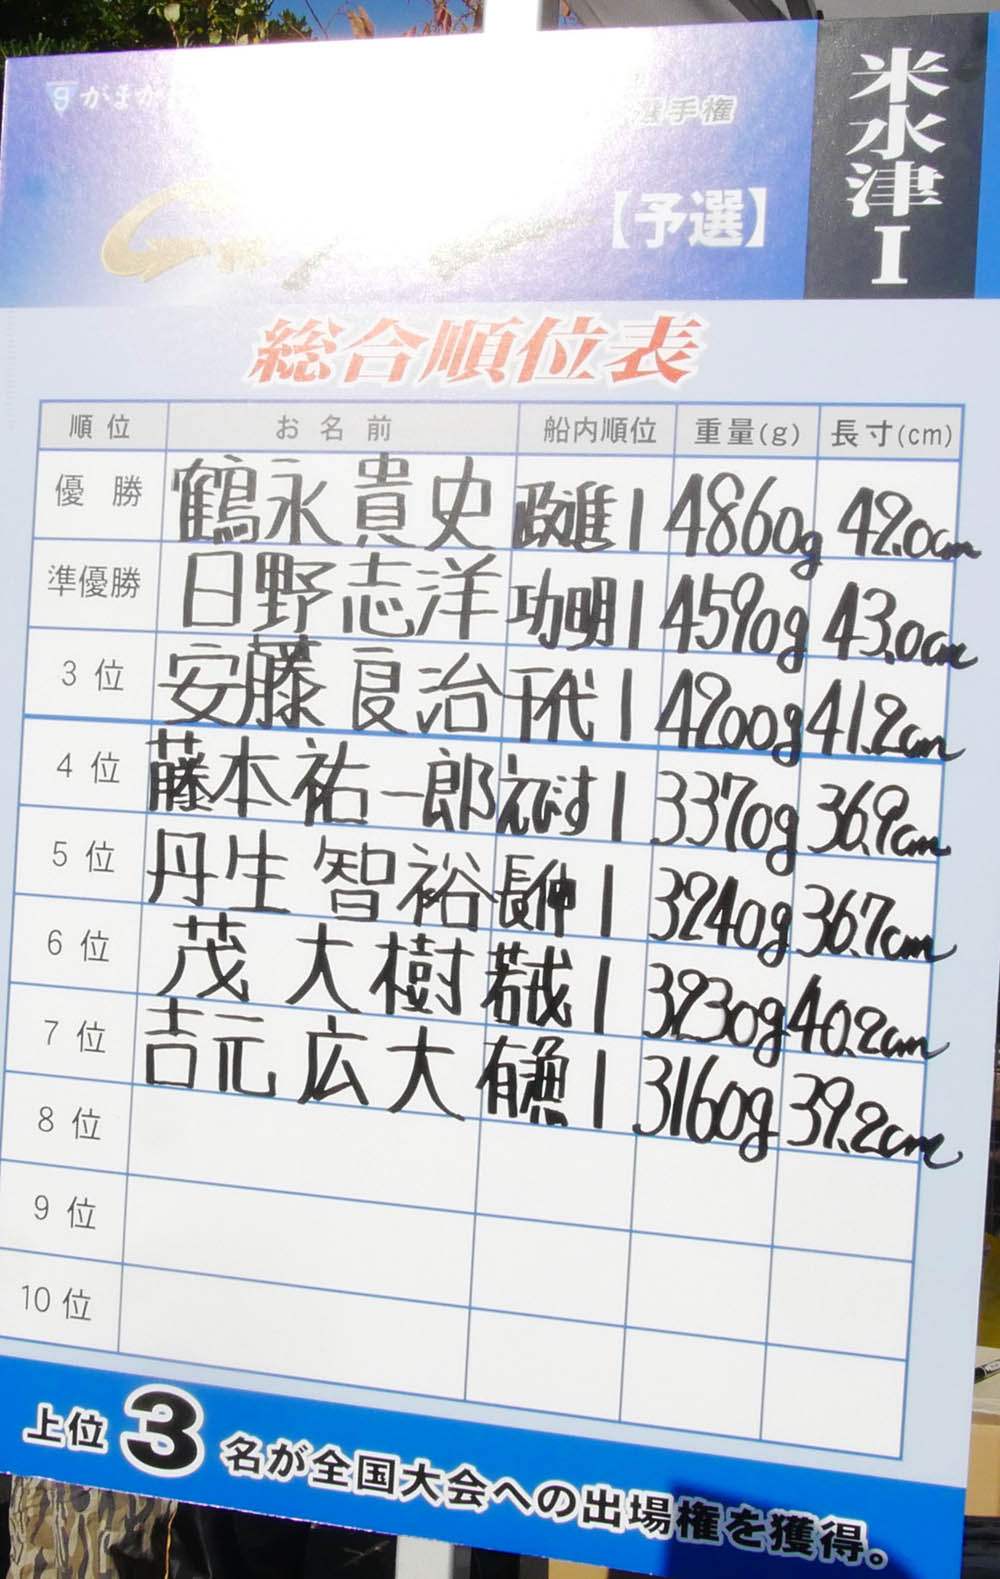 がまか
選手権
【予選】
米水津I
総合順位表
順位 お名前 船内順位 重量(g) 長寸(cm)
優勝 鶴永貴史 政進1 4860g 42.0cm
準優勝 日野志洋 功明1 4590g 43.0cm
3位 安藤良治 千代1 4200g 41.2cm
4位 藤本祐一郎 えびす1 3370g 36.9cm
5位 丹生智裕 長伸1 3240g 36.7cm
6位 茂大樹 若戎1 3230g 40.2cm
7位 吉元広大 有漁1 3160g 39.2cm
8位
9位
10位
上位3名が全国大会への出場権を獲得。